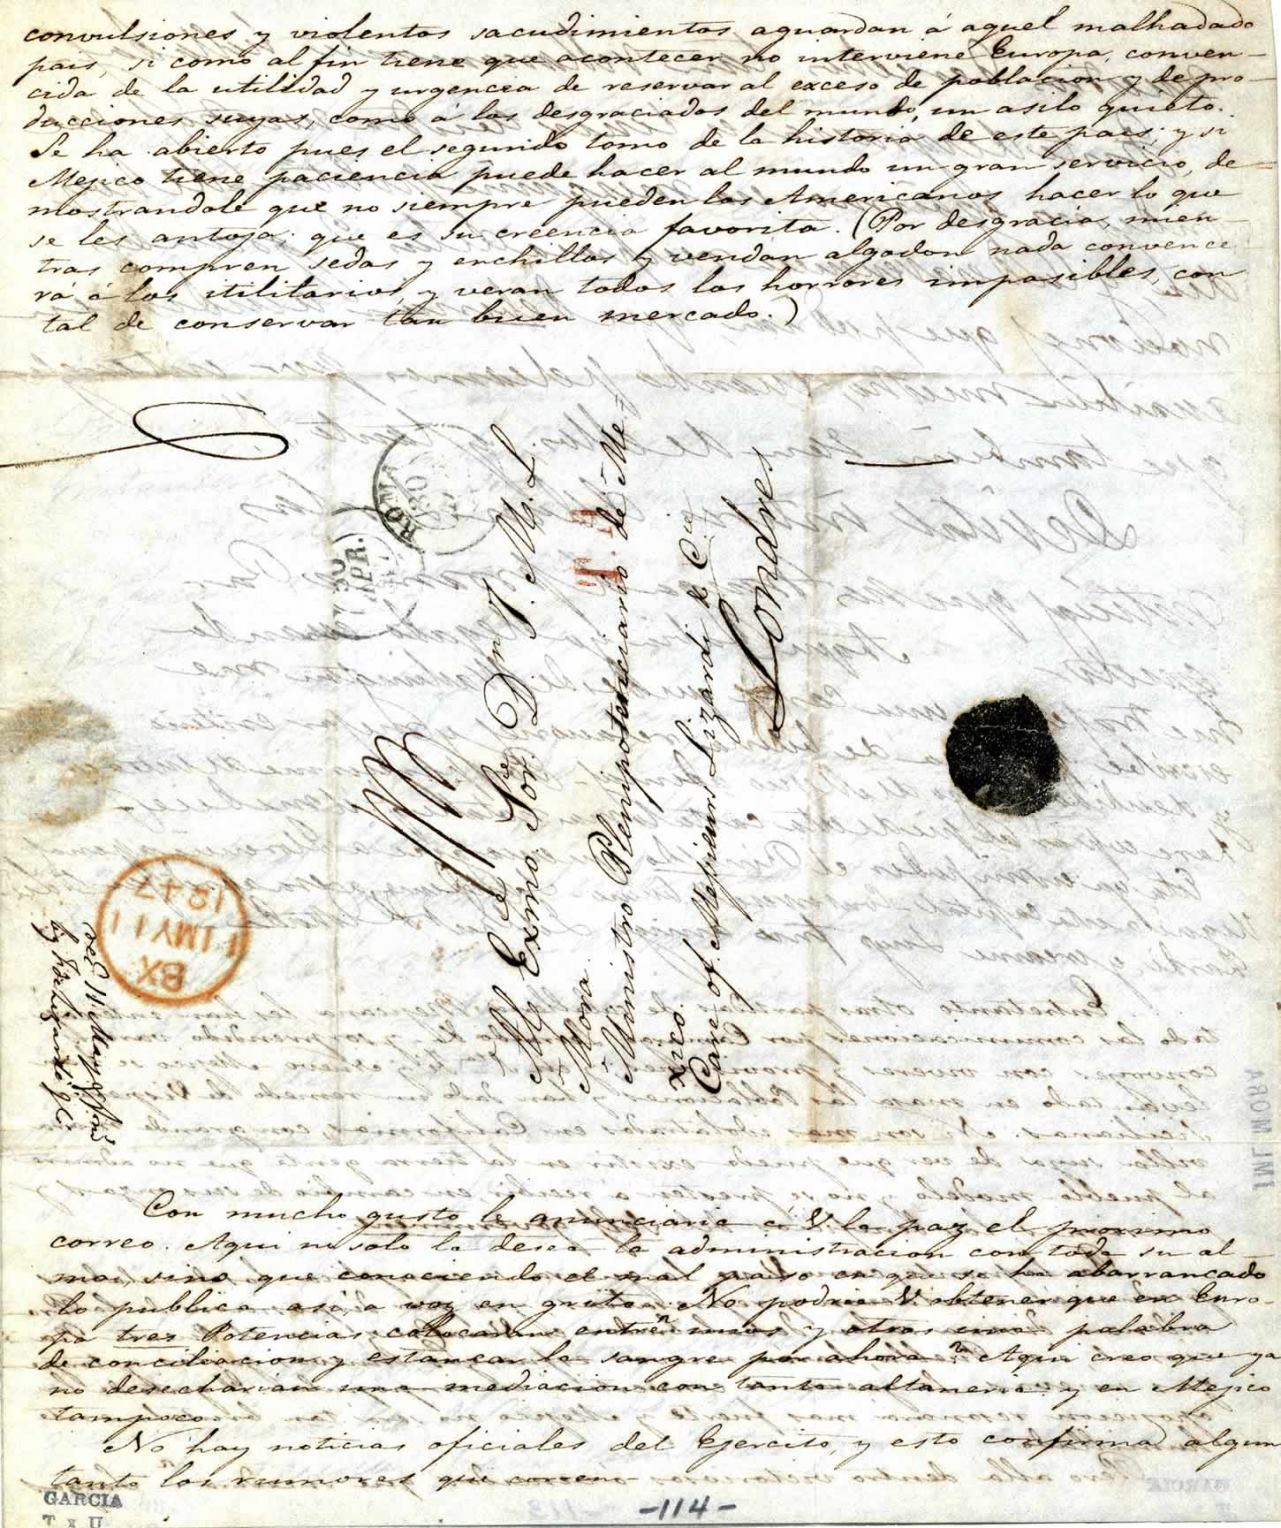 convulsiones y violentos sacudimientos aguardan á aquel malhadado
pais, si como al fin tiene que acontecer no interviene Europa, conven-
cida de la utilidad y urgencia de reservar al exceso de poblacion y de pro-
ducciones suyas, como á los desgraciados del mundo, un asilo quieto.
Se ha abierto pues el segundo tomo de la historia de este pais; y si
Mejico tiene paciencia puede hacer al mundo un gran servicio, de-
mostrandole que no siempre pueden los Americanos hacer lo que
se les antoja; que es su creencia favorita. (Por desgracia, mien-
tras compren sedas y cuchillos y vendan algodon nada convence
rá á los utilitarios, y veran todos los horrores impasibles, con
tal de conservar tan buen mercado.)
ROMA
30
30
APR.
T.A
Al Exmo Sor. Dn J. M. L
Mora.
Ministro Plenipotenciario de Me=
xico.
Care of Messieurs Lizardi & Cie
Londres
BX
11 MY 11
1847
recd 11 May
by
J M L MORA
Con mucho gusto le anunciaria á V. la paz el proximo
correo. Aqui no solo la desea la administracion con toda su al-
ma, sino que conociendo el mal paso en que se ha abarrancado
lo publica asi, a voz en grito. No podria V. obtener que en Euro-
pa tres Potencias colocaran entre unos y otros una palabra
de conciliacion y estancar la sangre por ahora? Aqui creo que ya
no desecharian una mediacion con tanta altaneria y en Mejico
tampoco.
No hay noticias oficiales del Ejercito, y esto confirma algun
tanto los rumores que corren
GARCIA
-114-